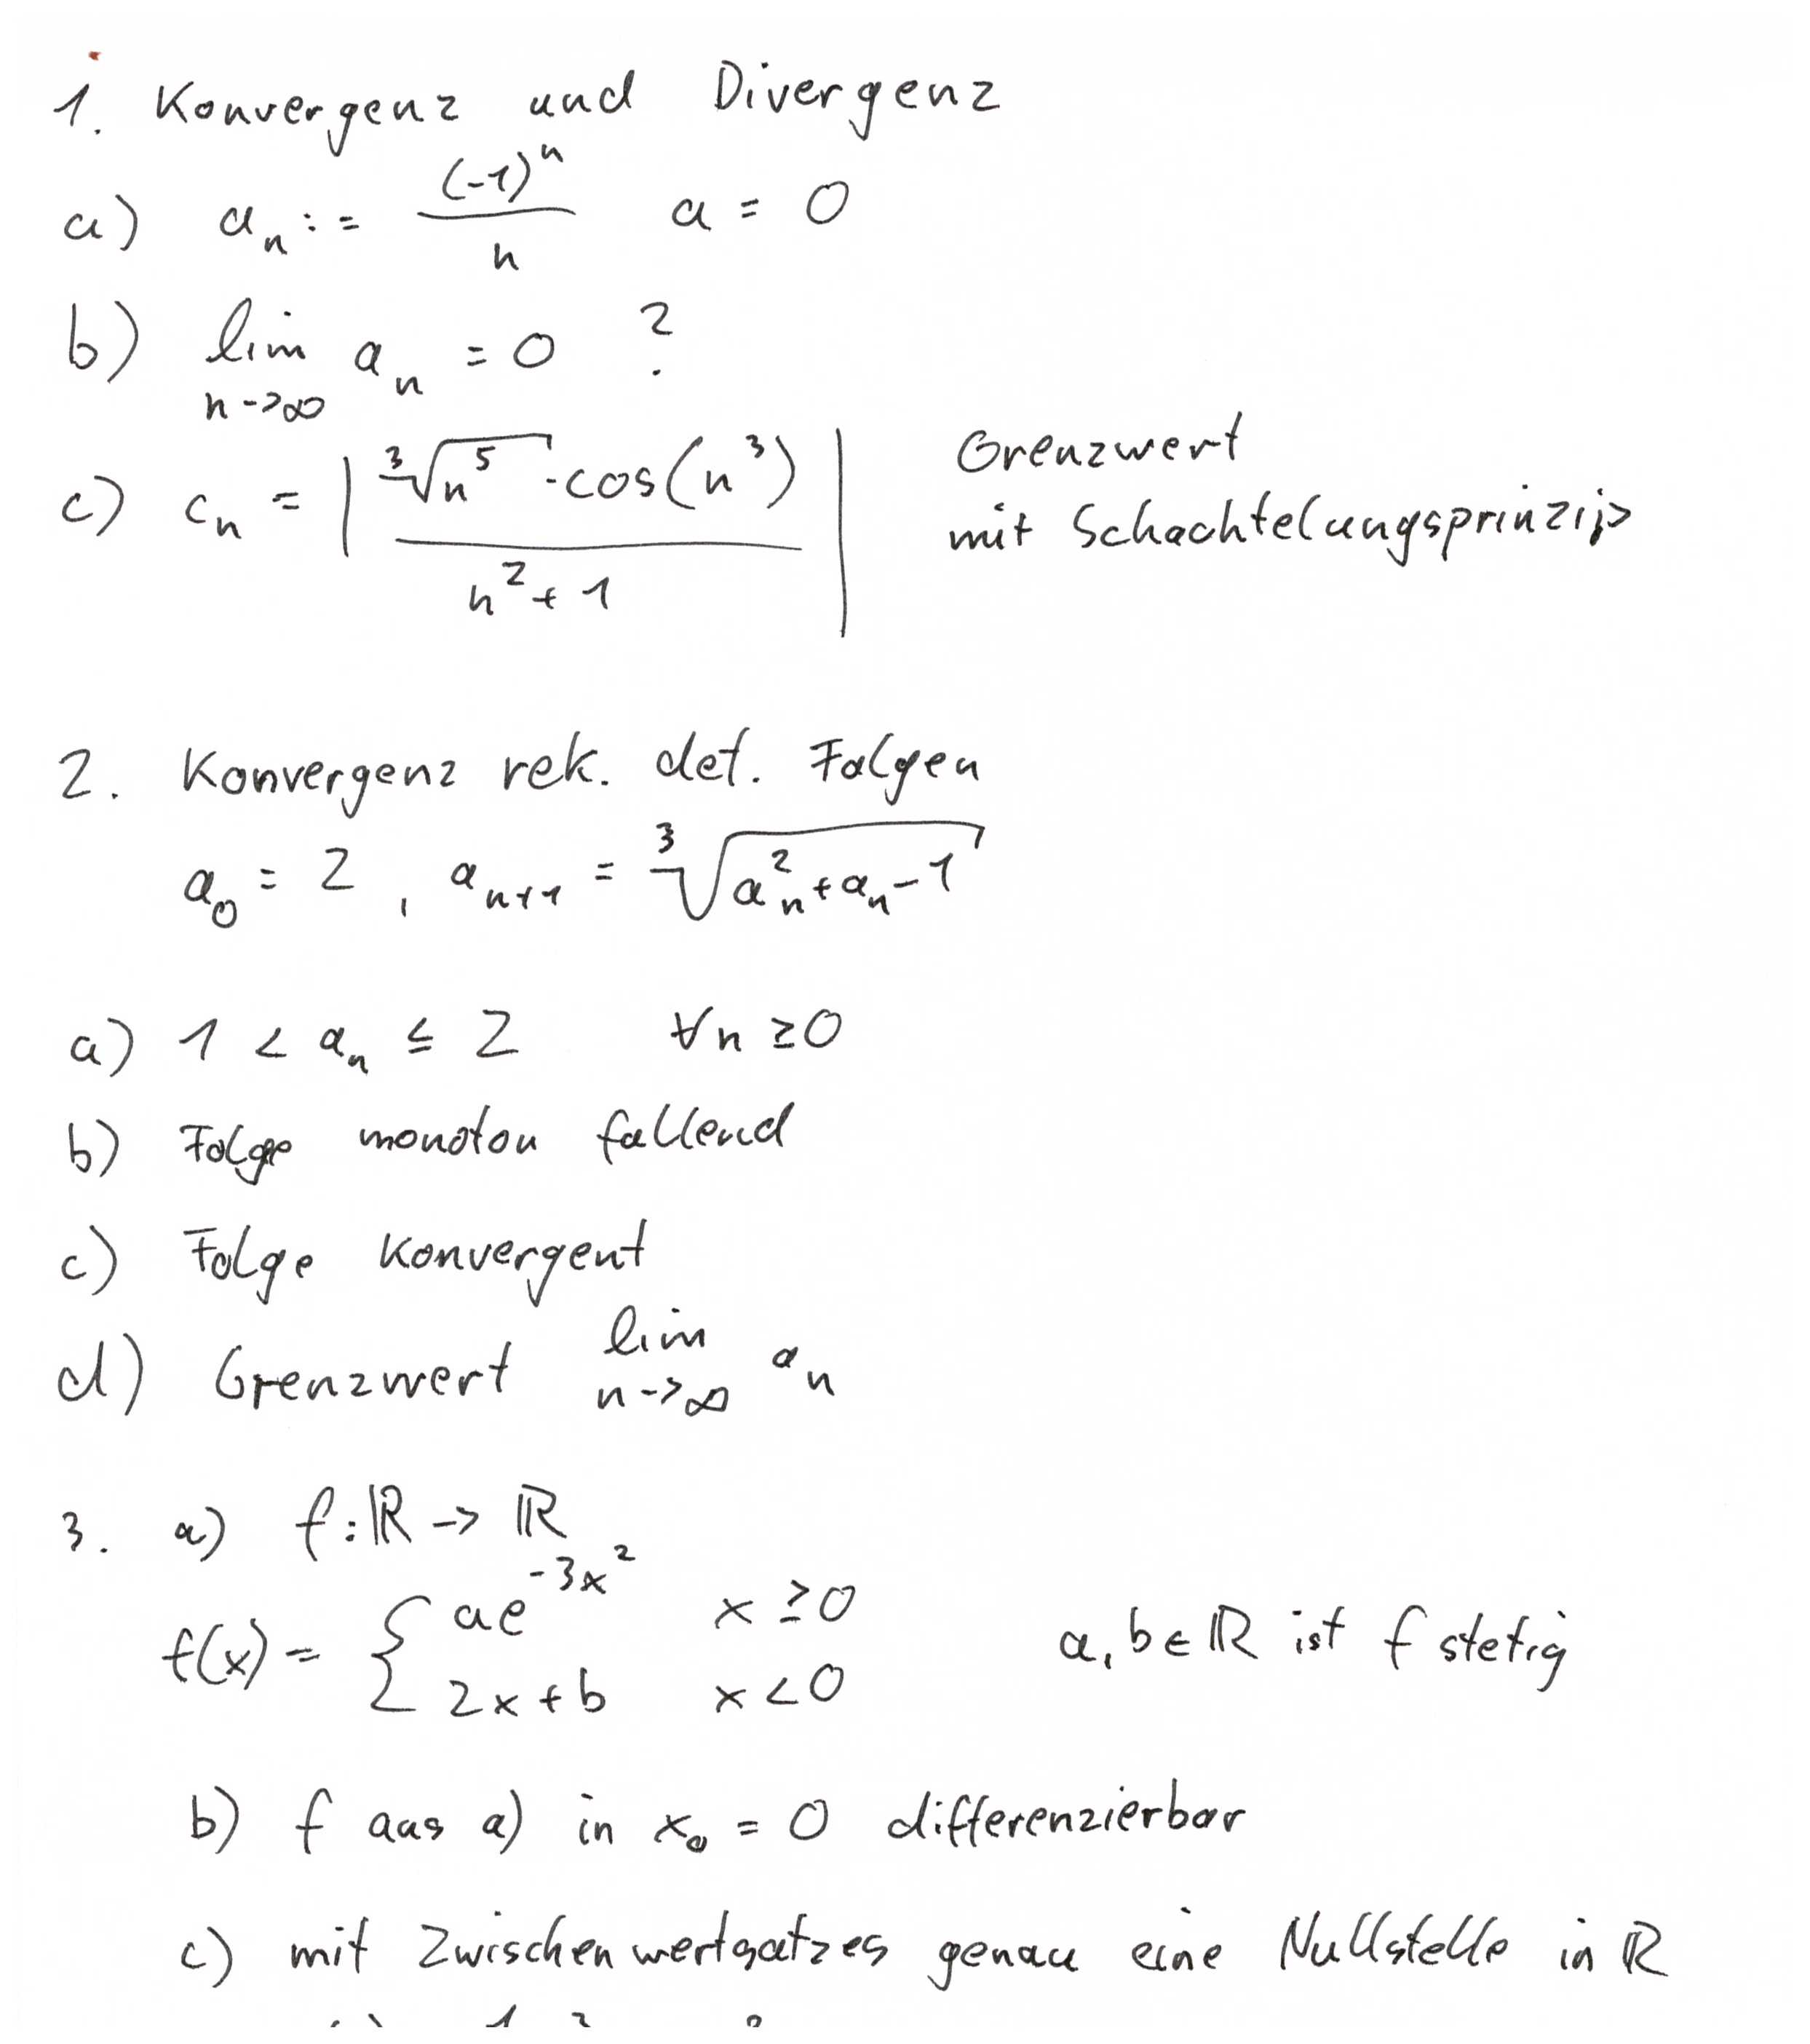 1. Konvergenz und Divergenz
a) aₙ := (-1)ⁿ / n   a = 0
b) lim n->∞ aₙ = 0 ?
c) cₙ = | ³√n⁵ · cos(n³) / n² + 1 |   Grenzwert
mit Schachtelungsprinzip
2. Konvergenz rek. def. Folgen
a₀ = 2 , aₙ₊₁ = ³√(aₙ² + aₙ - 1)
a) 1 < aₙ ≤ 2   ∀n ≥ 0
b) Folge monoton fallend
c) Folge konvergent
d) Grenzwert lim n->∞ aₙ
3. a) f: ℝ -> ℝ
f(x) = { ae^(-3x²)   x ≥ 0
2x + b   x < 0   a, b ∈ ℝ ist f stetig
b) f aus a) in x₀ = 0 differenzierbar
c) mit Zwischenwertsatzes genau eine Nullstelle in ℝ